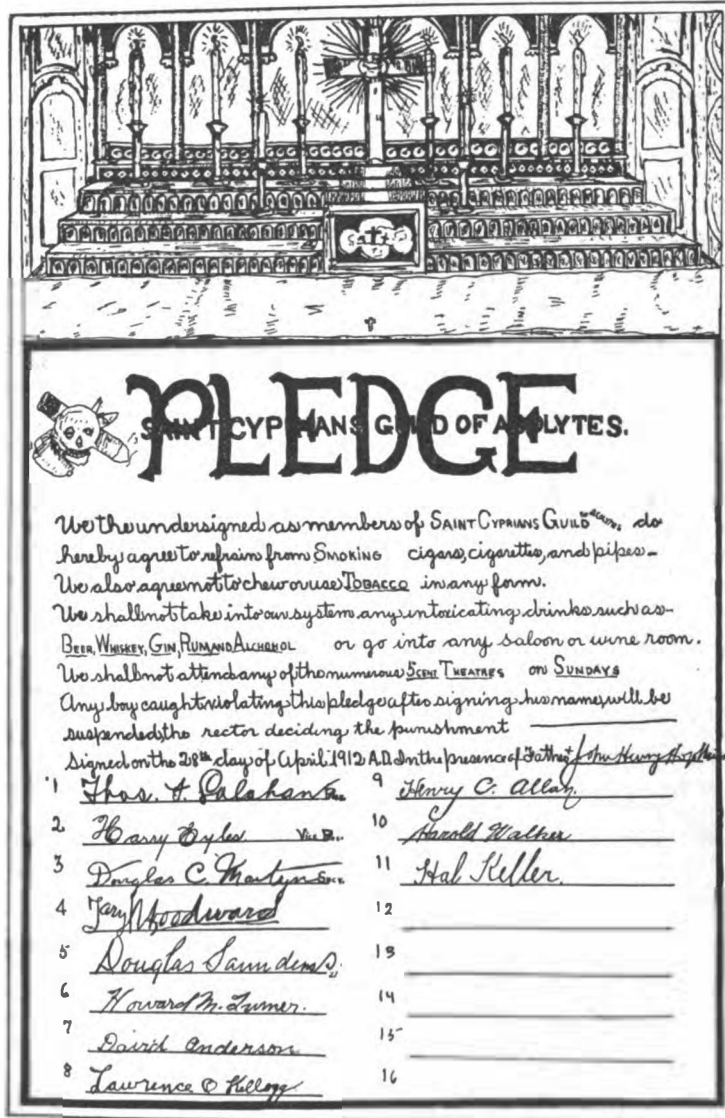 PLEDGE
SAINT CYPRIANS GUILD OF ACOLYTES.
We the undersigned as members of SAINT CYPRIANS GUILD do
hereby agree to refrain from SMOKING cigars, cigarettes, and pipes-
We also agree not to chew or use TOBACCO in any form.
We shall not take into our system any intoxicating drinks such as-
BEER, WHISKEY, GIN, RUM AND ALCHOHOL or go into any saloon or wine room.
We shall not attend any of the numerous 5 CENT THEATRES on SUNDAYS
Any boy caught violating this pledge after signing his name, will be
suspended, the rector deciding the punishment
Signed on the 28th day of April 1912 A.D. In the presence of Father John Henry Hopkins
1 Thos. A. Calahan Pres.
2 Harry Eyles Vice Pres.
3 Douglas C. Martyn Secr.
4 Woodward
5 Douglas Saunders
6 Howard M. Turner.
7 David Anderson
8 Lawrence O Kellogg
9 Henry C. Allan
10 Harold Walker
11 Hal Keller.
12
13
14
15
16